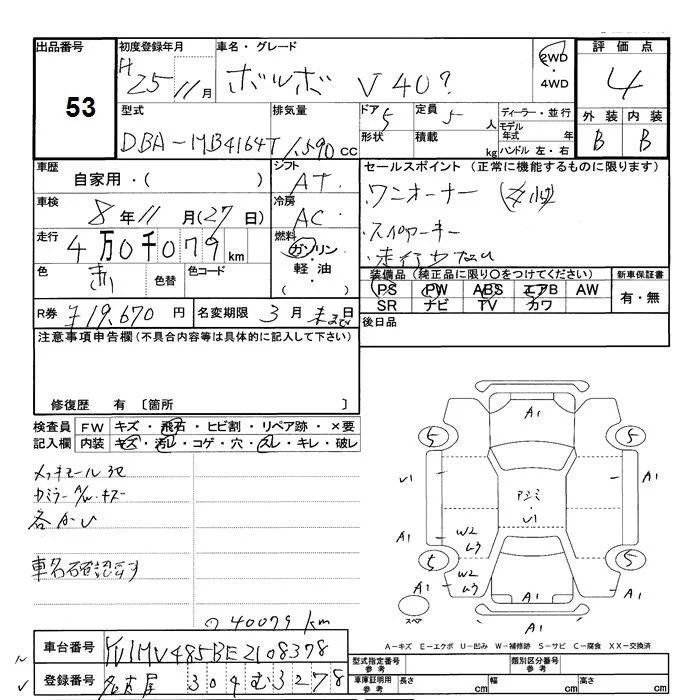 出品番号
53
初度登録年月
H 25 11月
車名・グレード
ボルボ V40?
2WD
・
4WD
評価点
4
型式
DBA-MB4164T
排気量
1,590 cc
ドア 5
形状
定員 5 人
積載 kg
ディーラー・並行
モデル年式 年
ハンドル 左・右
外装 内装
B B
車歴
自家用・( )
シフト
AT
セールスポイント (正常に機能するものに限ります)
ワンオーナー (女性)
スペアキー
走行少ない
車検
8年11月(27日)
冷房
AC
走行
4万0千079km
燃料
ガソリン・
軽油・
( )
色
赤
色替
色コード
装備品 (純正品に限り○をつけてください)
PS PW ABS エアB AW
SR ナビ TV カワ
新車保証書
有・無
後日品
R券 ¥19,670円
名変期限 3月末日
注意事項申告欄(不具合内容等は具体的に記入して下さい)
修復歴 有 〔箇所 〕
検査員 FW キズ・飛石・ヒビ割・リペア跡・×要
記入欄 内装 キズ・汚レ・コゲ・穴・スレ・キレ・破レ
キズ
車名確認要す
40079km
A1
5 5
V1 A1
V1
A1 W2 A1
5 5
A1 W2 A1
スペ
A1
A-キズ E-エクボ U-凹み W-補修跡 S-サビ C-腐食 XX-交換済
車台番号 YV1MV485BE2108378
登録番号 名古屋 304 む 3278
型式指定番号
参考
類別区分番号
参考
車庫証明用
参考
長さ cm 幅 cm 高さ cm